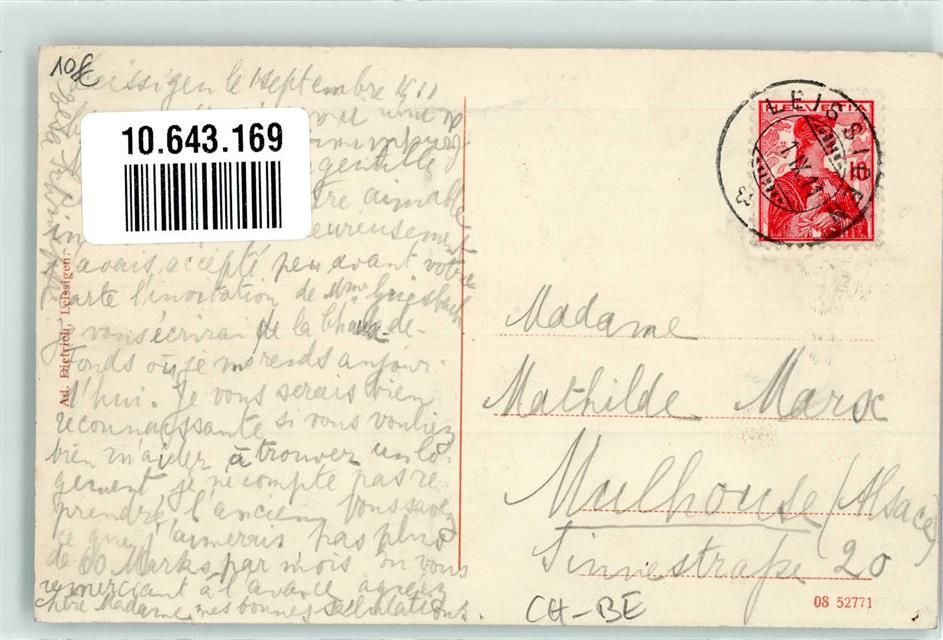 10.-
Leissigen le 1 septembre 1911
gentille
aimable
heureusement
avais accepté peu avant votre
carte l'invitation de Mme
vous écrirai de la Chaux-de-
Fonds où je me rends aujour-
d'hui. Je vous serais bien
reconnaissante si vous vouliez
bien m'aider à trouver un lo-
gement je ne compte pas re-
prendre l'ancien. Vous savez
ce que j'aimerais pas plus
de 60 Marks par mois. En vous
remerciant à l'avance agréez
chère Madame, mes bonnes salutations.
10.643.169
Ad. Dietrich, Leissigen.
HELVETIA
LEISSIGEN
1.IX.11
Madame
Mathilde Marx
Mulhouse (Alsace)
Sinnestraße 20
CH-BE
08 52771